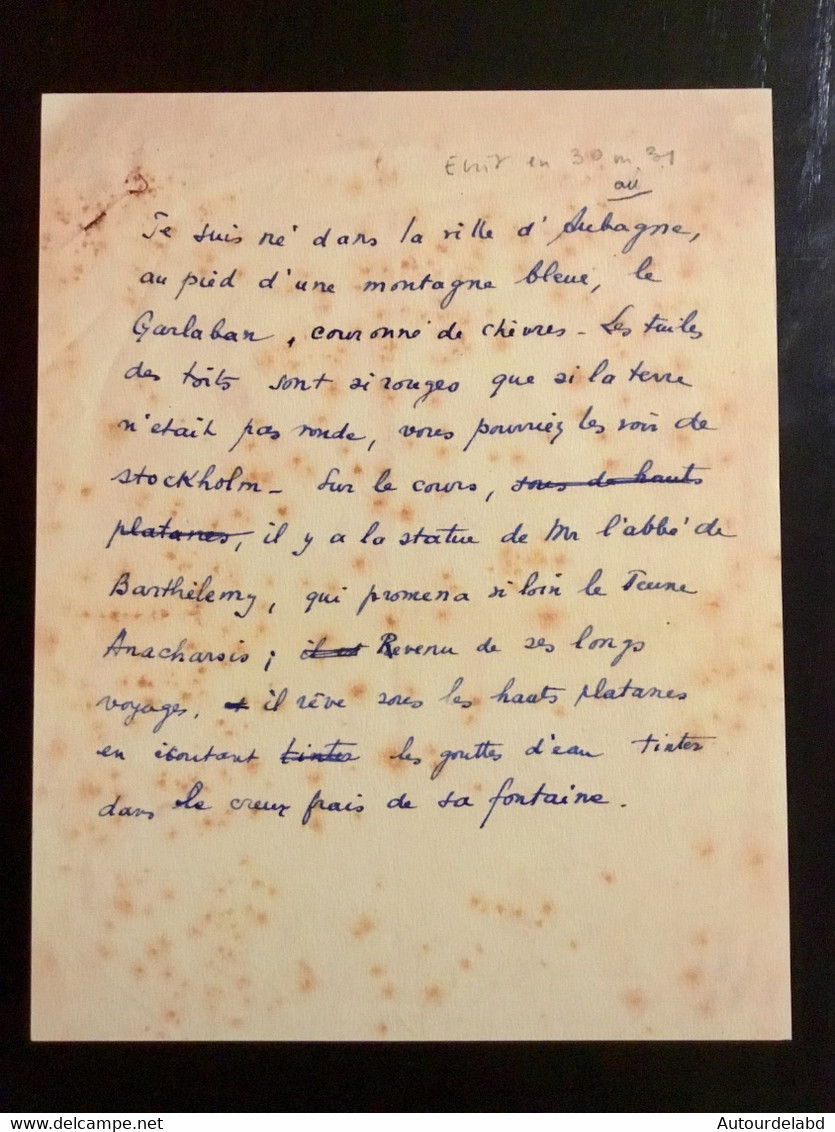 Ecrit en 30 ou 31
au
Je suis né dans la ville d'Aubagne,
au pied d'une montagne bleue, le
Garlaban, couronné de chèvres - Les tuiles
des toits sont si rouges que si la terre
n'était pas ronde, vous pourriez les voir de
stockholm - Sur le cours, sous de hauts
platanes, il y a la statue de Mr l'abbé de
Barthélemy, qui promena si loin le Jeune
Anacharsis ; il est Revenu de ses longs
voyages, et il rêve sous les hauts platanes
en écoutant tinter les gouttes d'eau tinter
dans le creux frais de sa fontaine.
delcampe.net
Autourdelabd